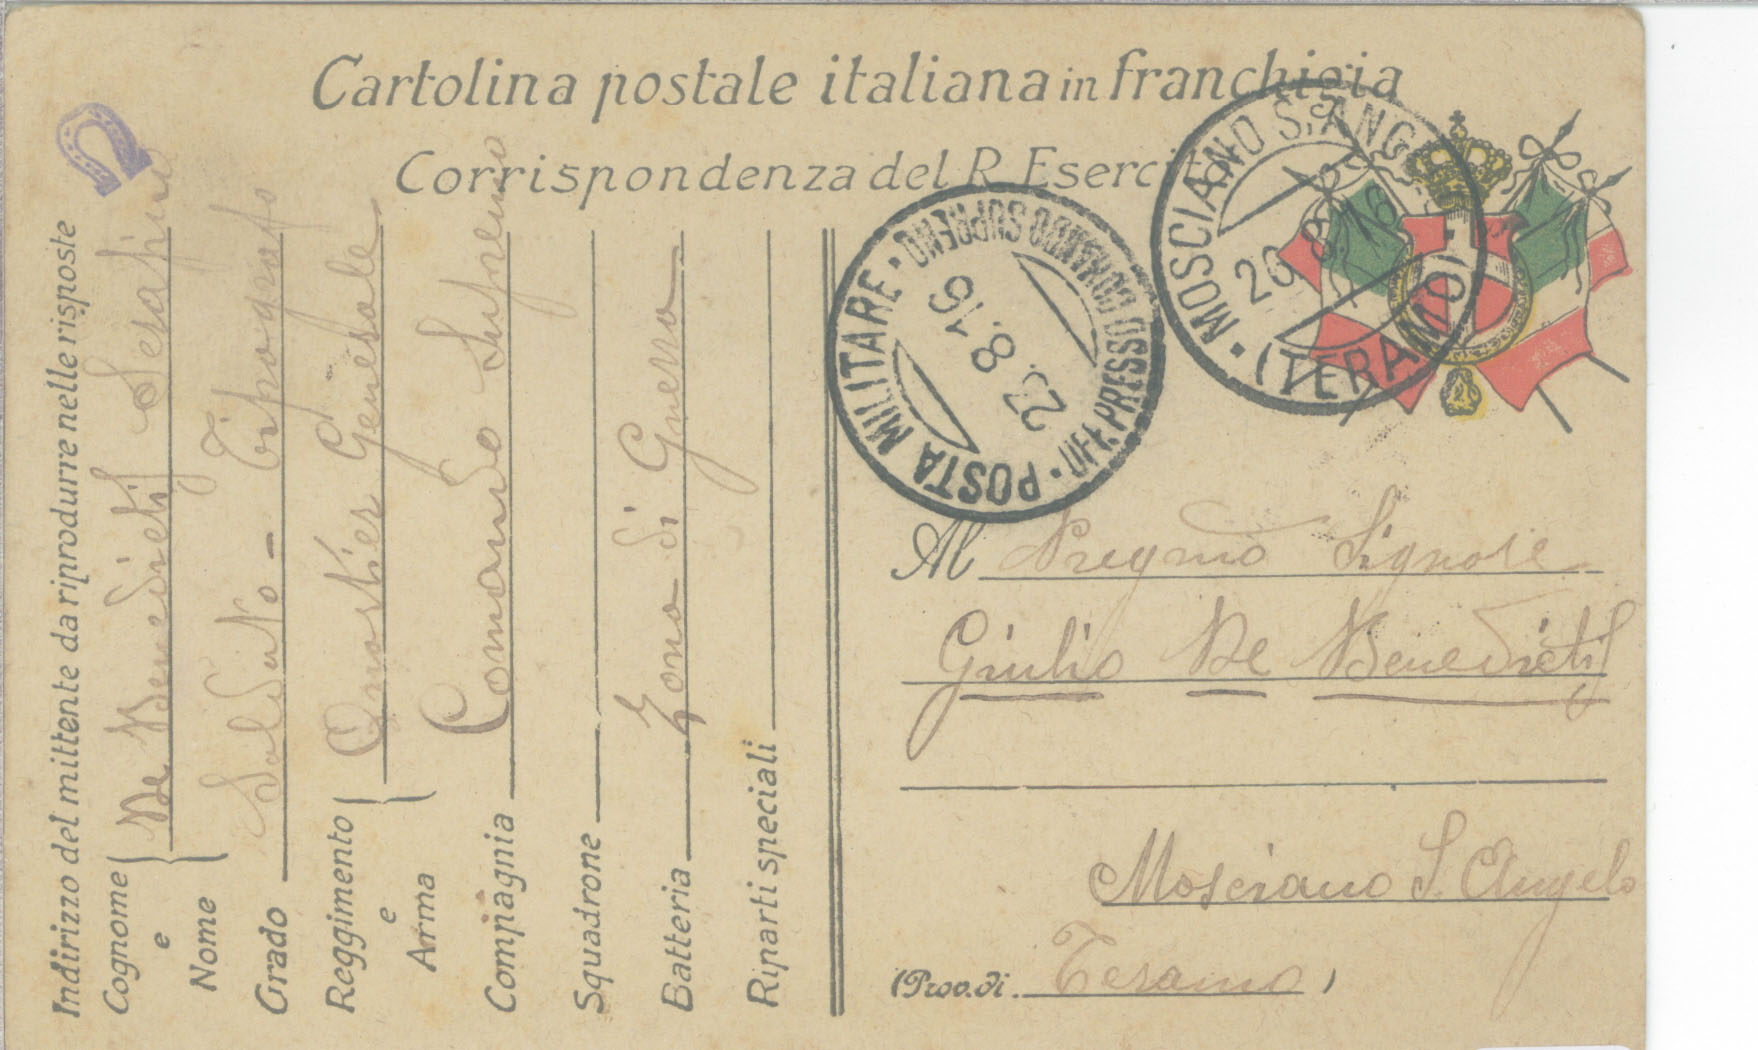 Cartolina postale italiana in franchigia
Corrispondenza del R. Esercito
Indirizzo del mittente da riprodurre nelle risposte
Cognome e Nome De Benedictis Serafino
Grado Soldato - Tipografo
Reggimento e Arma Quartier Generale
Compagnia Comando Supremo
Squadrone
Batteria Zona di Guerra
Riparti speciali
POSTA MILITARE · UFF. PRESSO COMANDO SUPREMO ·
23.8.16
· MOSCIANO S. ANGELO · (TERAMO)
26.8.16
Al Pregmo Signore
Giulio De Benedictis
Mosciano S. Angelo
(Prov. di Teramo)